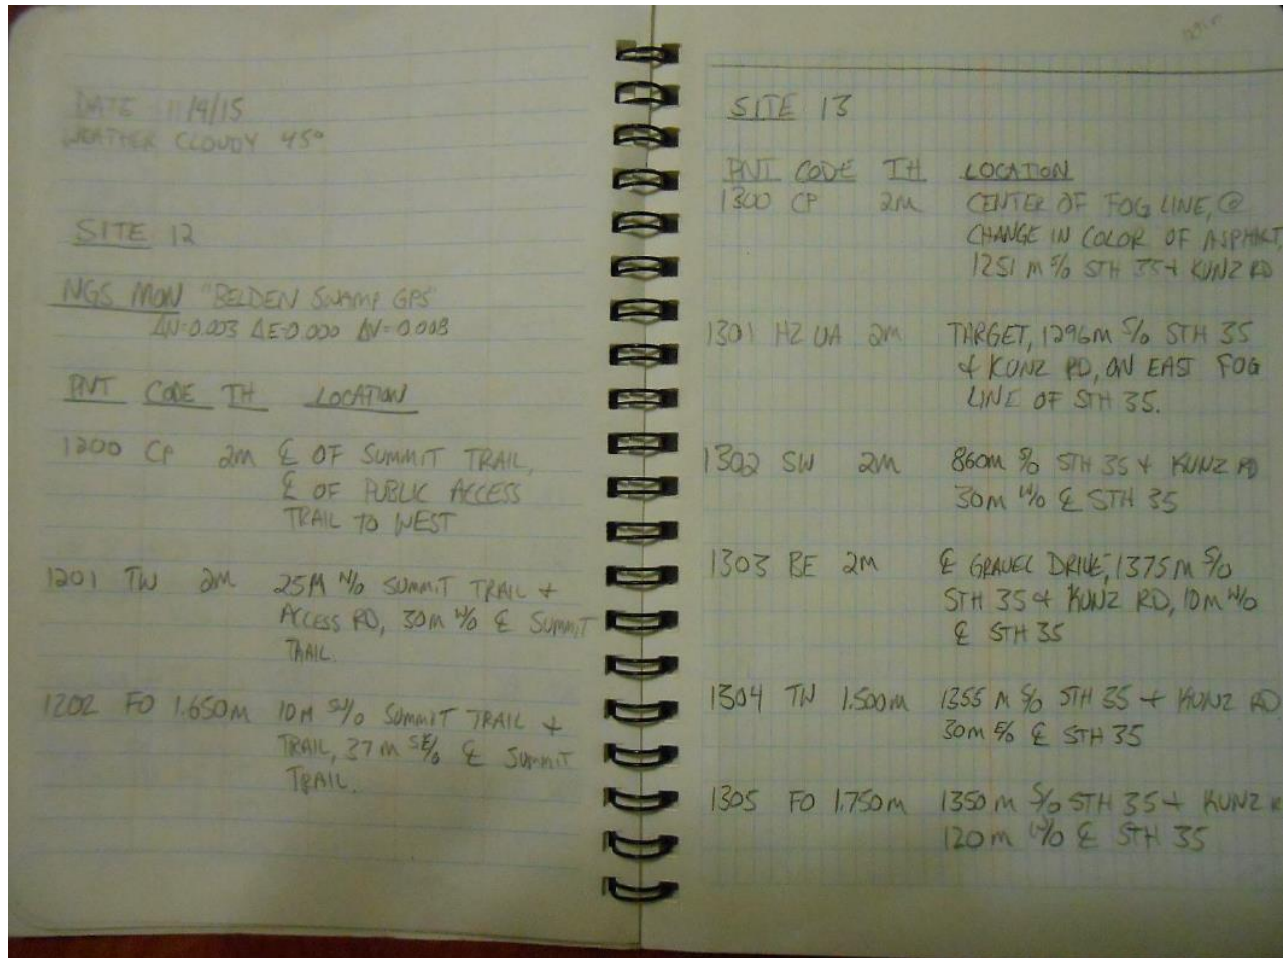 DATE 11/4/15
WEATHER CLOUDY 45°
SITE 12
NGS MON "BELDEN SWAMP GPS"
ΔN=0.003 ΔE=0.000 ΔV=0.008
PNT CODE TH LOCATION
1200 CP 2M ℄ OF SUMMIT TRAIL,
℄ OF PUBLIC ACCESS
TRAIL TO WEST
1201 TW 2M 25M N/O SUMMIT TRAIL +
ACCESS RD, 30M W/O ℄ SUMMIT
TRAIL.
1202 FO 1.650M 10M SW/O SUMMIT TRAIL +
TRAIL, 37M SE/O ℄ SUMMIT
TRAIL.
SITE 13
PNT CODE TH LOCATION
1300 CP 2M CENTER OF FOG LINE, @
CHANGE IN COLOR OF ASPHALT
1251 M S/O STH 35 + KUNZ RD
1301 HZ UA 2M TARGET, 1296M S/O STH 35
+ KUNZ RD, ON EAST FOG
LINE OF STH 35.
1302 SW 2M 860M S/O STH 35 + KUNZ RD
30M W/O ℄ STH 35
1303 BE 2M ℄ GRAVEL DRIVE, 1375M S/O
STH 35 + KUNZ RD, 10M W/O
℄ STH 35
1304 TW 1.500M 1355 M S/O STH 35 + KUNZ RD
30M E/O ℄ STH 35
1305 FO 1.750M 1350M S/O STH 35 + KUNZ R
120M W/O ℄ STH 35